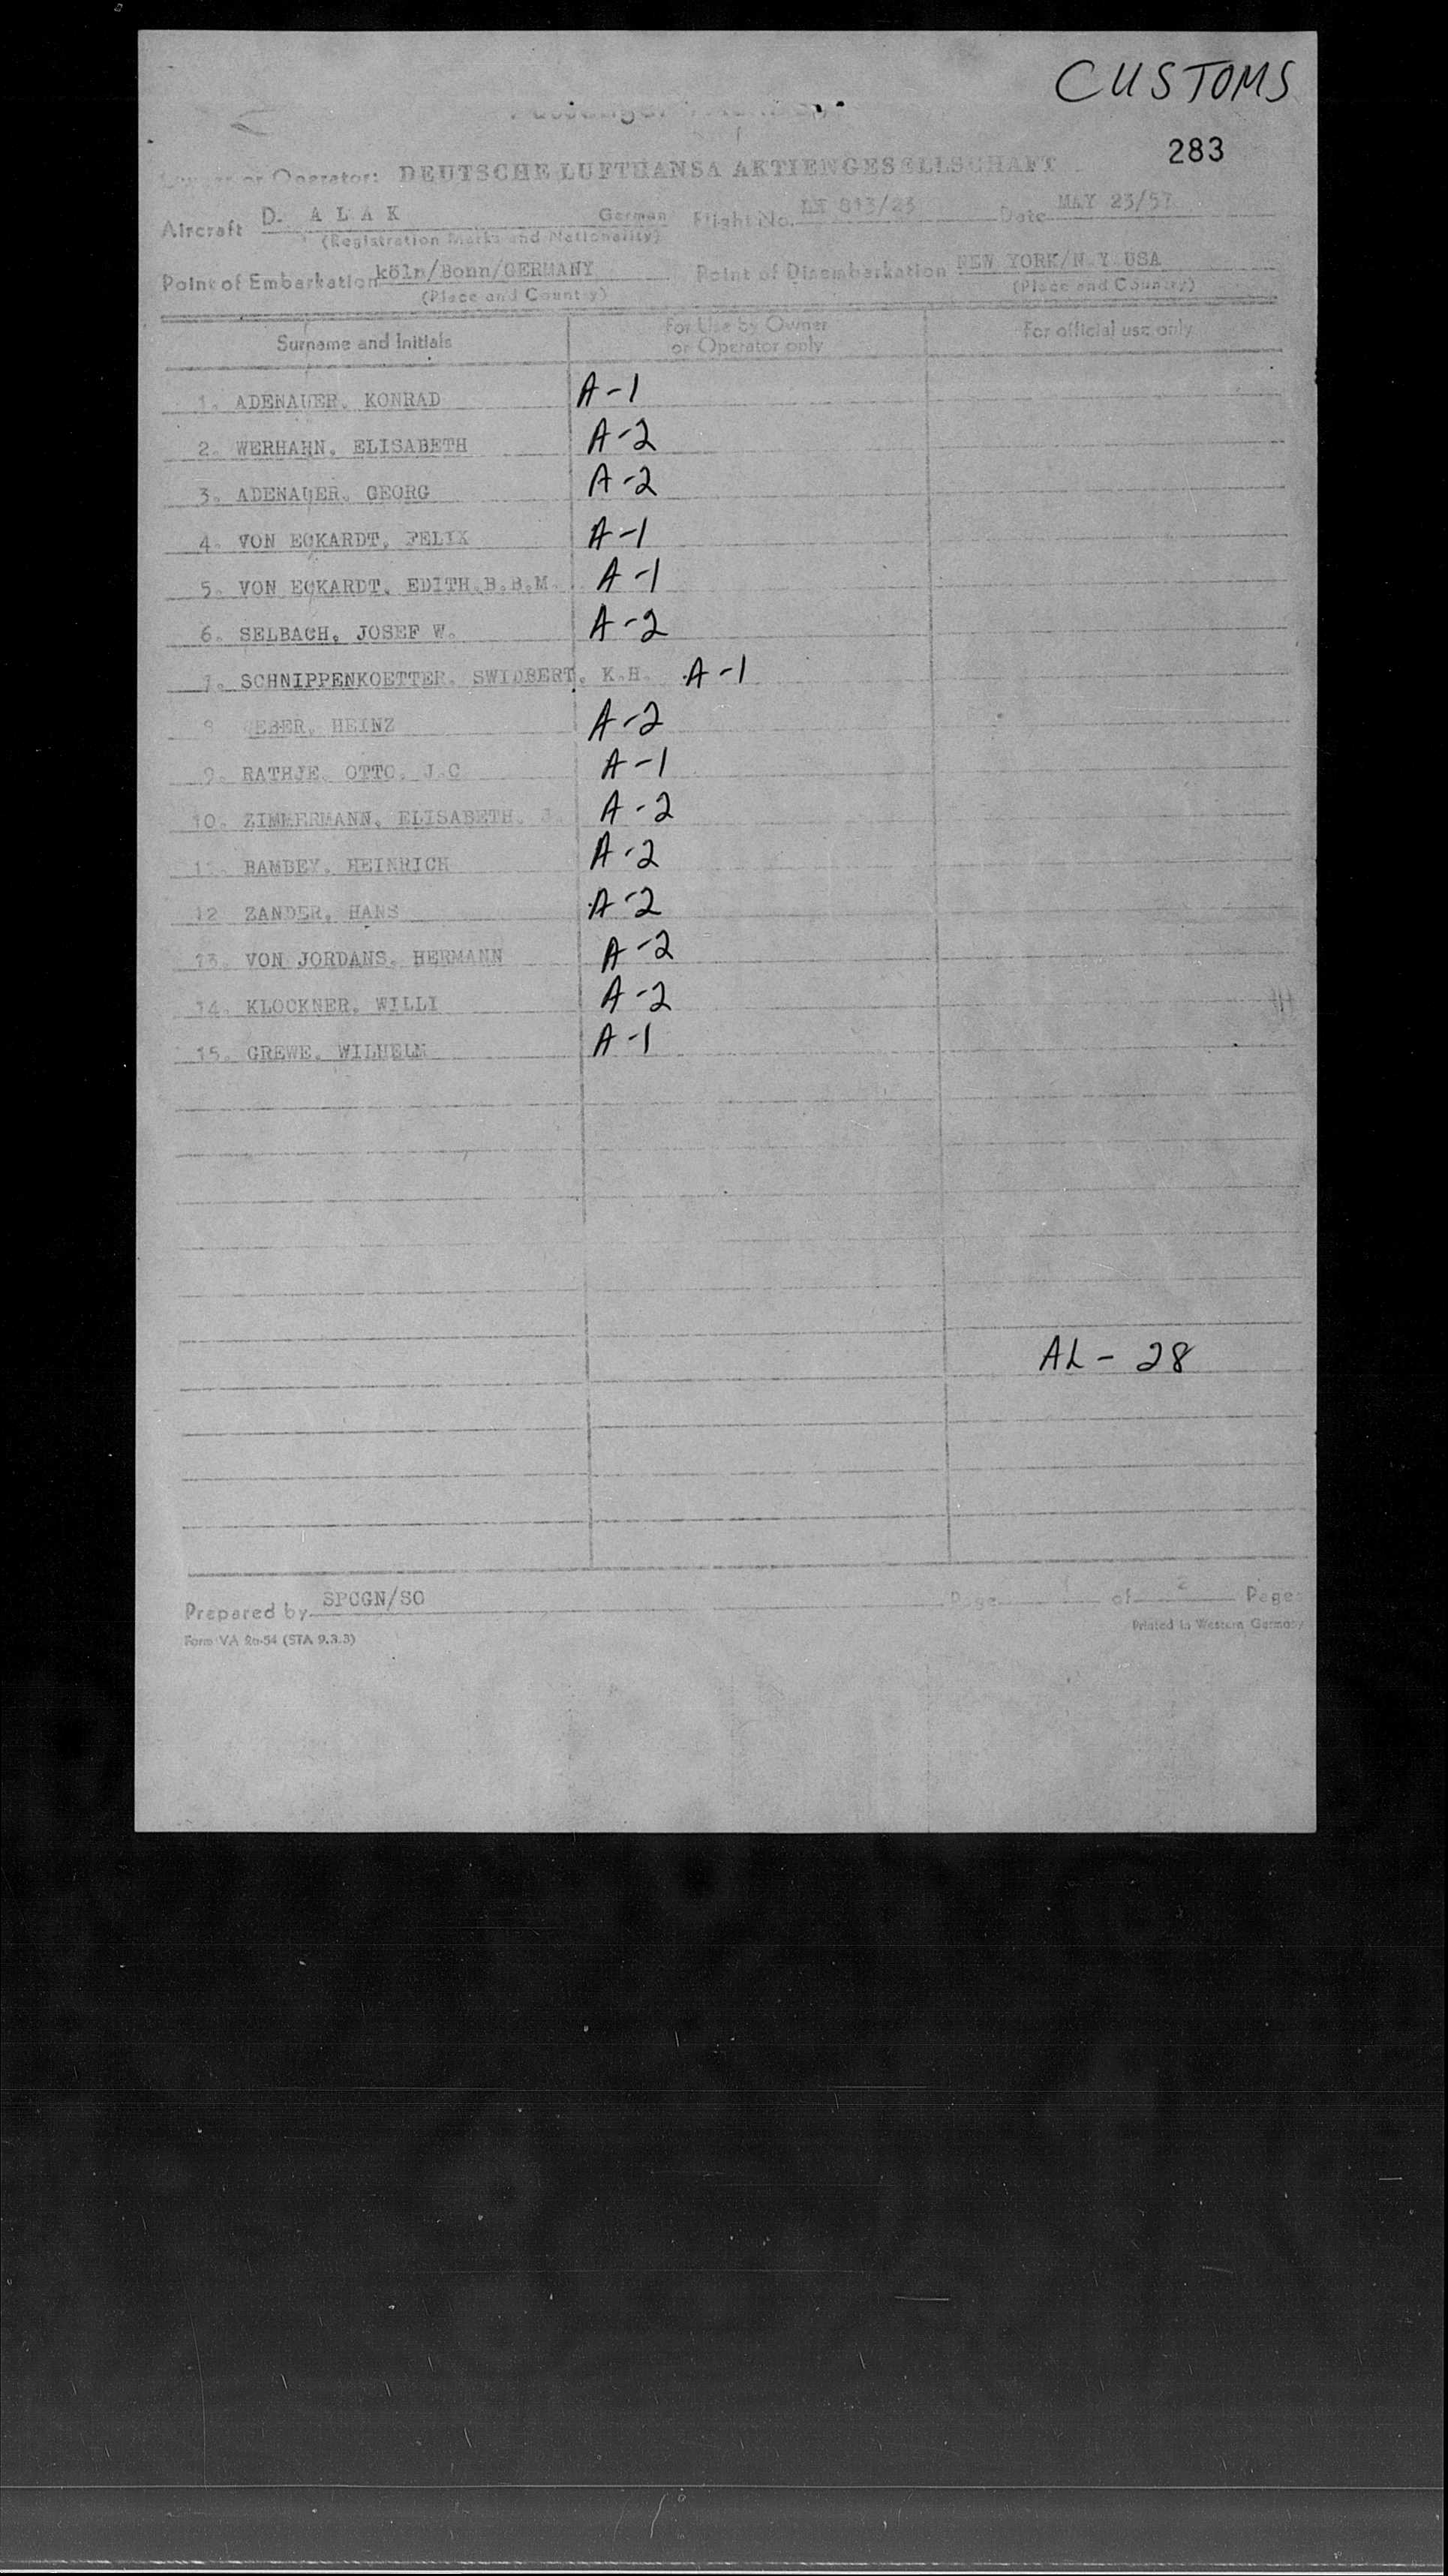 CUSTOMS
283
or Operator: DEUTSCHE LUFTHANSA AKTIENGESELLSCHAFT
Aircraft D. A L A K German Flight No. 813/23 Date MAY 23/57
(Registration Marks and Nationality)
Point of Embarkation köln/Bonn/GERMANY Point of Disembarkation NEW YORK/N.Y USA
(Place and Country) (Place and Country)
Surname and Initials For Use by Owner or Operator only For official use only
1. ADENAUER. KONRAD A-1
2. WERHAHN. ELISABETH A-2
3. ADENAUER. GEORG A-2
4. VON ECKARDT. FELIX A-1
5. VON ECKARDT. EDITH.B.B.M. A-1
6. SELBACH. JOSEF W. A-2
7. SCHNIPPENKOETTER. SWIDBERT. K.H. A-1
8 HEINZ A-2
9. RATHJE. OTTO. J.C A-1
10. ZIMMERMANN. ELISABETH. A-2
11. BAMBEY. HEINRICH A-2
12 ZANDER. HANS A-2
13. VON JORDANS. HERMANN A-2
14. KLOCKNER. WILLI A-2
15. GREWE. WILHELM A-1
AL - 28
Prepared by SPCGN/SO Page 1 of 2 Pages
Form VA 2a-54 (STA 9.3.3) Printed in Western Germany